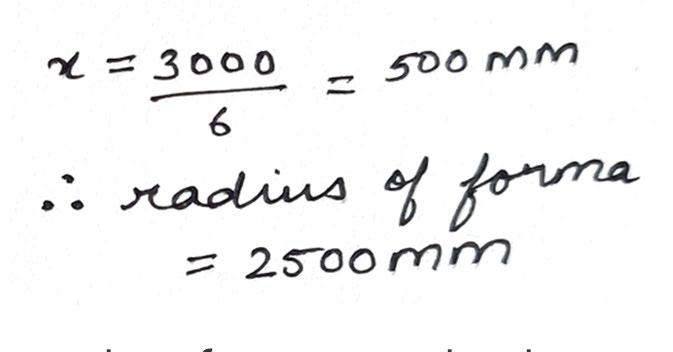 x = 3000/6 = 500 mm
∴ radius of forma
= 2500 mm